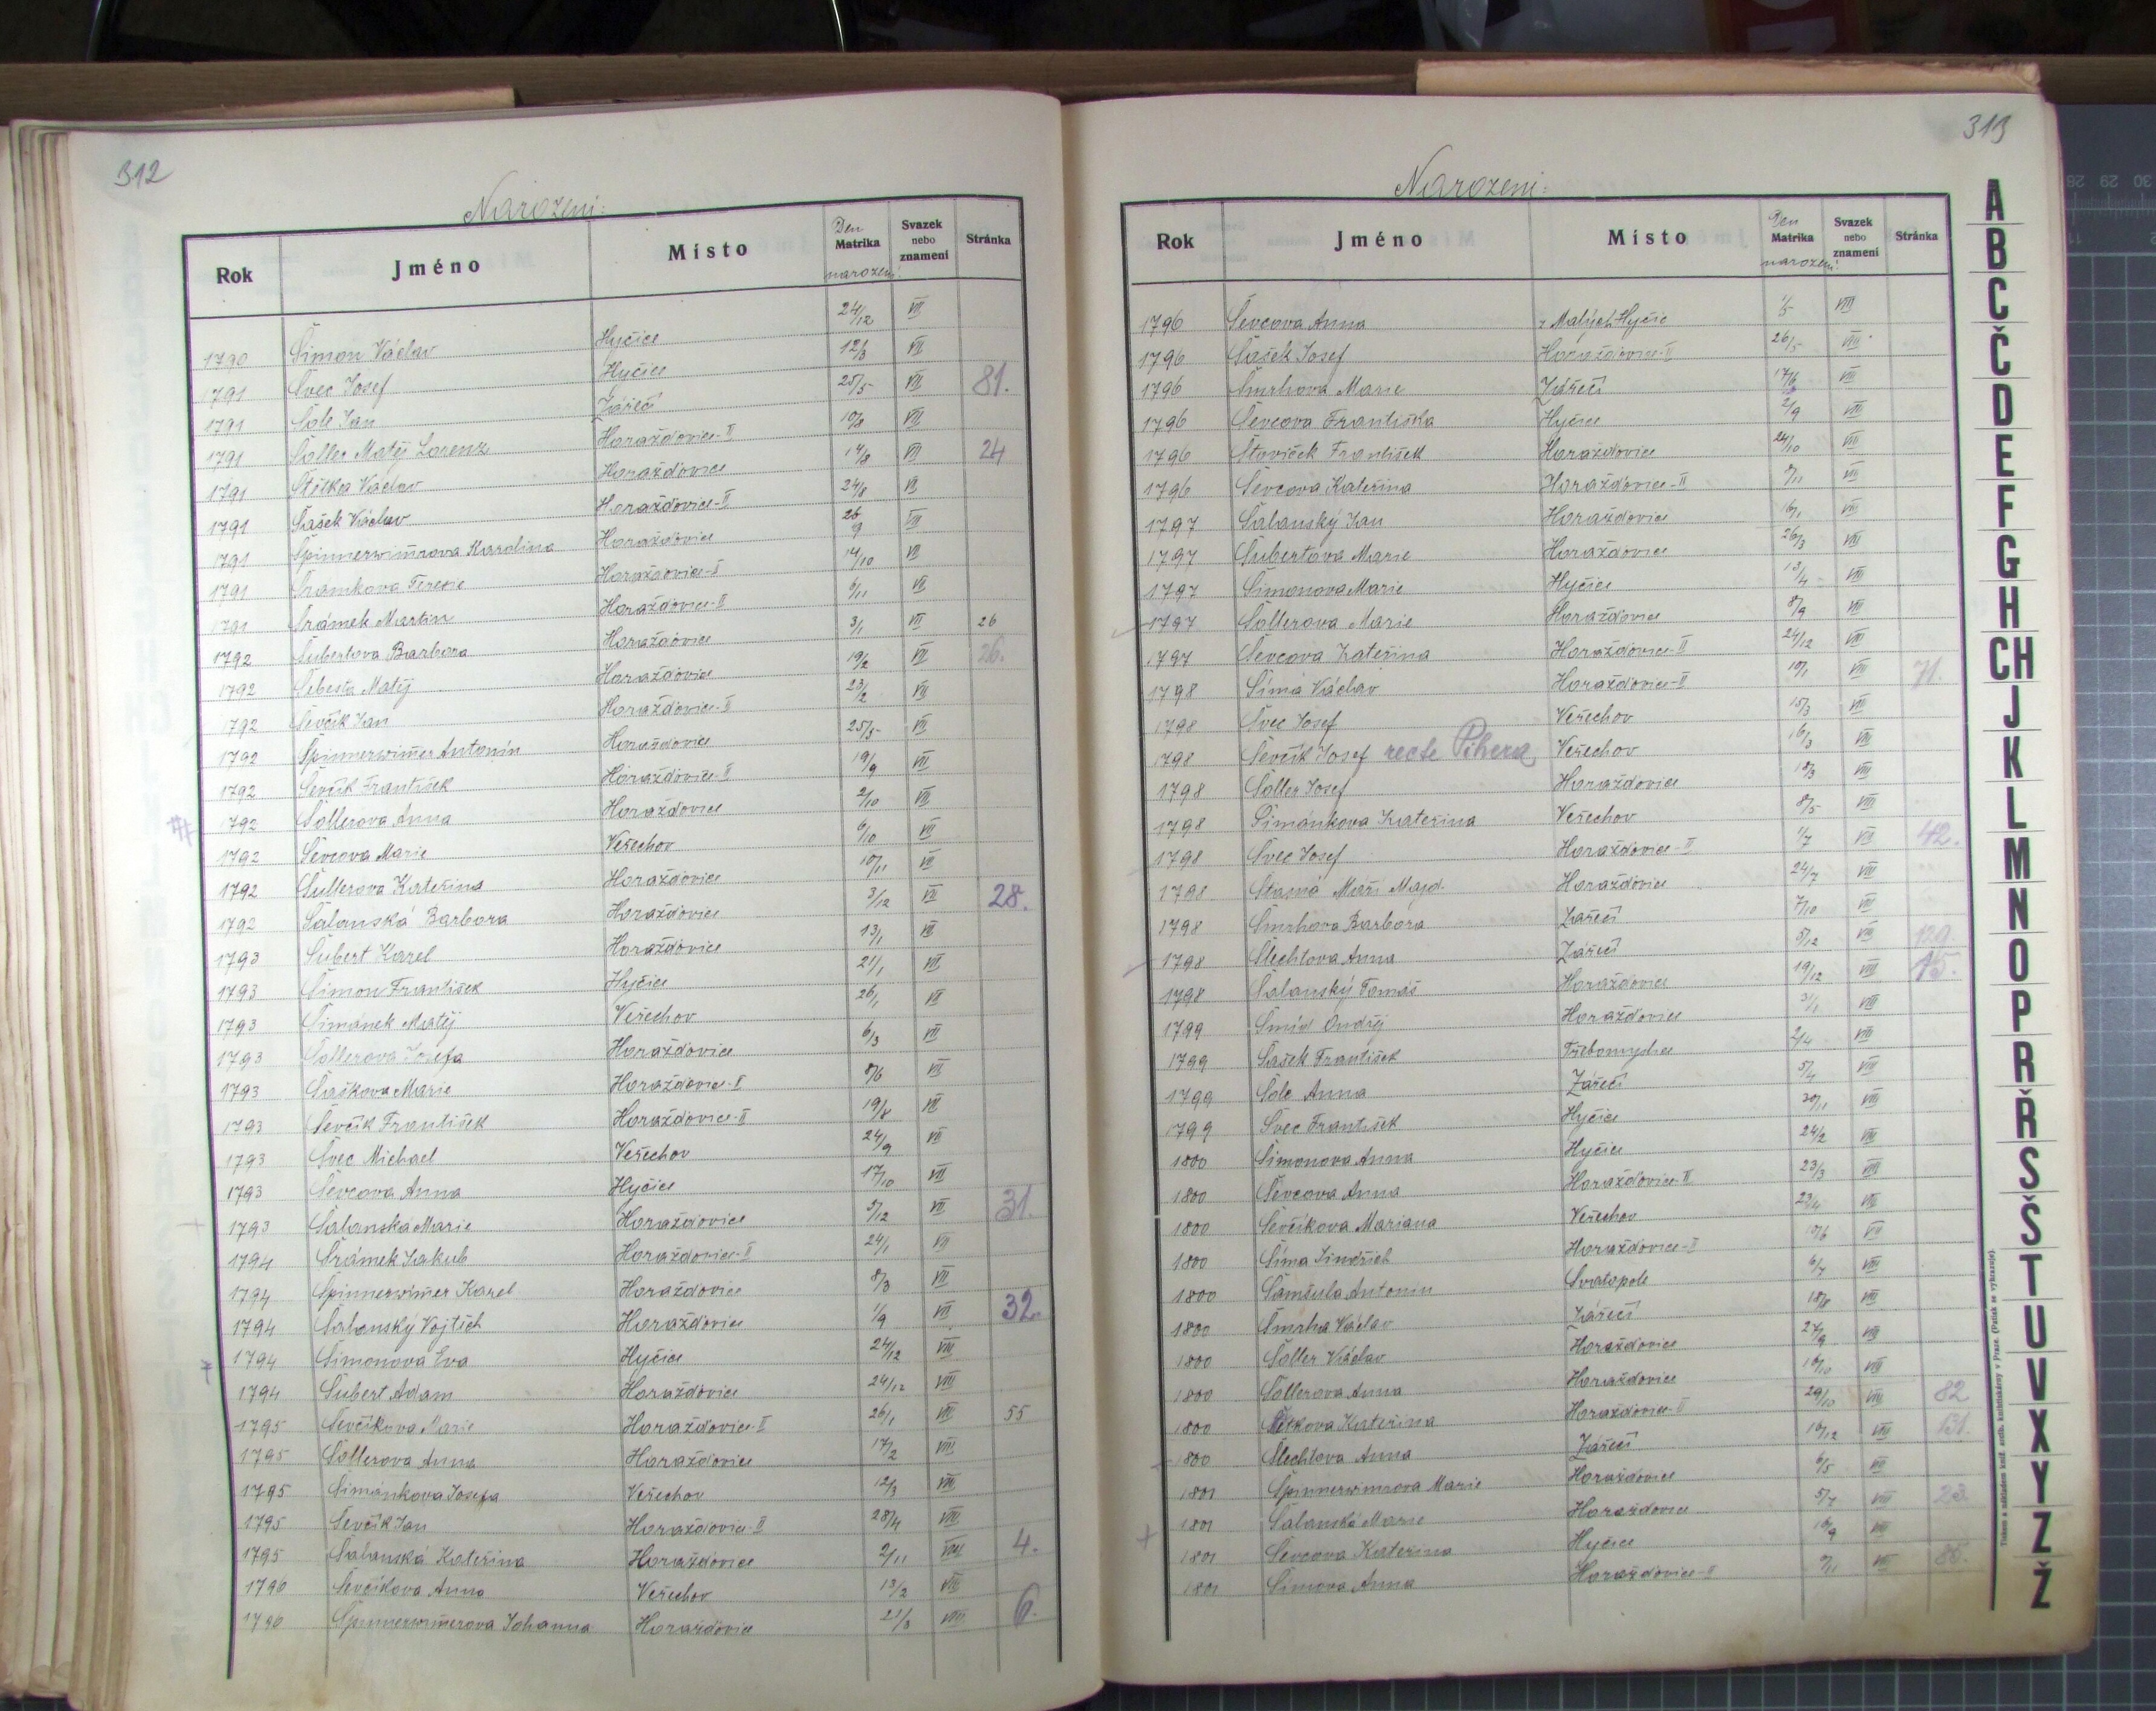 312
Narozeni:
Rok Jméno Místo Den Matrika narození Svazek nebo znamení Stránka
1790 Šimon Václav Hyčice 24/12 VII
1791 Švec Josef Hyčice 12/3 VII
1791 Šole Jan Zářečí 25/5 VII 81.
1791 Šoller Matěj Lorenz Horažďovice-II 10/8 VII
1791 Štětka Václav Horažďovice 14/8 VII 24
1791 Šašek Václav Horažďovice-II 24/8 VII
1791 Špinnerwimrova Karolina Horažďovice 26/9 VII
1791 Šramkova Terezie Horažďovice-I 14/10 VII
1791 Šrámek Martin Horažďovice-II 6/11 VII
1792 Šubertova Barbora Horažďovice 3/1 VII 26
1792 Šebesta Matěj Horažďovice 19/2 VII 26.
1792 Ševčík Jan Horažďovice-II 23/2 VII
1792 Špinnerwimer Antonín Horažďovice 25/5 VII
1792 Ševčík František Horažďovice-II 19/9 VII
1792 Šollerova Anna Horažďovice 2/10 VII
1792 Ševcova Marie Veřechov 6/10 VII
1792 Šullerova Kateřina Horažďovice 10/11 VII
1792 Šalanská Barbora Horažďovice 3/12 VII 28.
1793 Šubert Karel Horažďovice 13/1 VII
1793 Šimon František Hyčice 21/1 VII
1793 Šimánek Matěj Veřechov 26/1 VII
1793 Šollerova Josefa Horažďovice 6/3 VII
1793 Šaškova Marie Horažďovice-II 8/6 VII
1793 Ševčík František Horažďovice-II 19/8 VII
1793 Švec Michael Veřechov 24/9 VII
1793 Ševcova Anna Hyčice 17/10 VII
1793 Šalanská Marie Horažďovice 5/12 VII 31.
1794 Šrámek Jakub Horažďovice-II 24/1 VII
1794 Špinnerwimer Karel Horažďovice 8/3 VII
1794 Šalanský Vojtěch Horažďovice 1/9 VII 32.
1794 Šimonova Eva Hyčice 24/12 VIII
1794 Šubert Adam Horažďovice 24/12 VIII
1795 Ševčíkova Marie Horažďovice-II 26/1 VIII 55
1795 Šollerova Anna Horažďovice 17/2 VIII
1795 Šimánkova Josefa Veřechov 12/3 VIII
1795 Ševčík Jan Horažďovice-II 28/4 VIII
1795 Šalanská Kateřina Horažďovice 2/11 VIII 4.
1796 Ševčíkova Anna Veřechov 13/2 VIII
1796 Špinnerwimerova Johanna Horažďovice 21/3 VIII 6.
313
Narozeni:
Rok Jméno Místo Den Matrika narození Svazek nebo znamení Stránka
1796 Ševcova Anna z Malých Hyčic 1/5 VIII
1796 Šašek Josef Horažďovice-II 26/5 VIII
1796 Šmrhova Marie Zářečí 17/6 VIII
1796 Ševcova Františka Hyčice 2/9 VIII
1796 Štoviček František Horažďovice 24/10 VIII
1796 Ševcova Kateřina Horažďovice-II 8/11 VIII
1797 Šalanský Jan Horažďovice 16/1 VIII
1797 Šubertova Marie Horažďovice 26/3 VIII
1797 Šimonova Marie Hyčice 13/4 VIII
1797 Šollerova Marie Horažďovice 8/9 VIII
1797 Ševcova Kateřina Horažďovice-II 24/12 VIII
1798 Šíma Václav Horažďovice-II 10/1 VIII 71.
1798 Švec Josef Veřechov 15/3 VIII
1798 Ševčík Josef recte Pihera Veřechov 16/3 VIII
1798 Šoller Josef Horažďovice 18/3 VIII
1798 Šimánkova Kateřina Veřechov 8/5 VIII
1798 Švec Josef Horažďovice-II 1/7 VIII 42.
1798 Šťastná Maří Majd. Horažďovice 24/7 VIII
1798 Šmrhova Barbora Zářečí 7/10 VIII
1798 Šlechtova Anna Zářečí 5/12 VIII 129
1798 Šalanský Tomáš Horažďovice 19/12 VIII 15.
1799 Šmíd Ondřej Horažďovice 3/1 VIII
1799 Šašek František Třebomyslice 2/4 VIII
1799 Šole Anna Zářečí 5/4 VIII
1799 Švec František Hyčice 30/11 VIII
1800 Šimonova Anna Hyčice 24/2 VIII
1800 Ševcova Anna Horažďovice-II 23/3 VIII
1800 Ševčíkova Mariana Veřechov 23/4 VIII
1800 Šíma Jindřich Horažďovice-II 10/6 VIII
1800 Šamšula Antonín Svatopole 6/7 VIII
1800 Šmrha Václav Zářečí 18/8 VIII
1800 Šoller Václav Horažďovice 27/9 VIII
1800 Šollerova Anna Horažďovice 16/10 VIII
1800 Štětkova Kateřina Horažďovice-II 29/10 VIII 82
1800 Šlechtova Anna Zářečí 16/12 VIII 131.
1801 Špinnerwimrova Marie Horažďovice 6/5 VIII
1801 Šalanská Marie Horažďovice 5/7 VIII 23
1801 Ševcova Kateřina Hyčice 16/9 VIII
1801 Šímova Anna Horažďovice-II 9/11 VIII 86.
A
B
C
Č
D
E
F
G
H
CH
J
K
L
M
N
O
P
R
Ř
S
Š
T
U
V
X
Y
Z
Ž